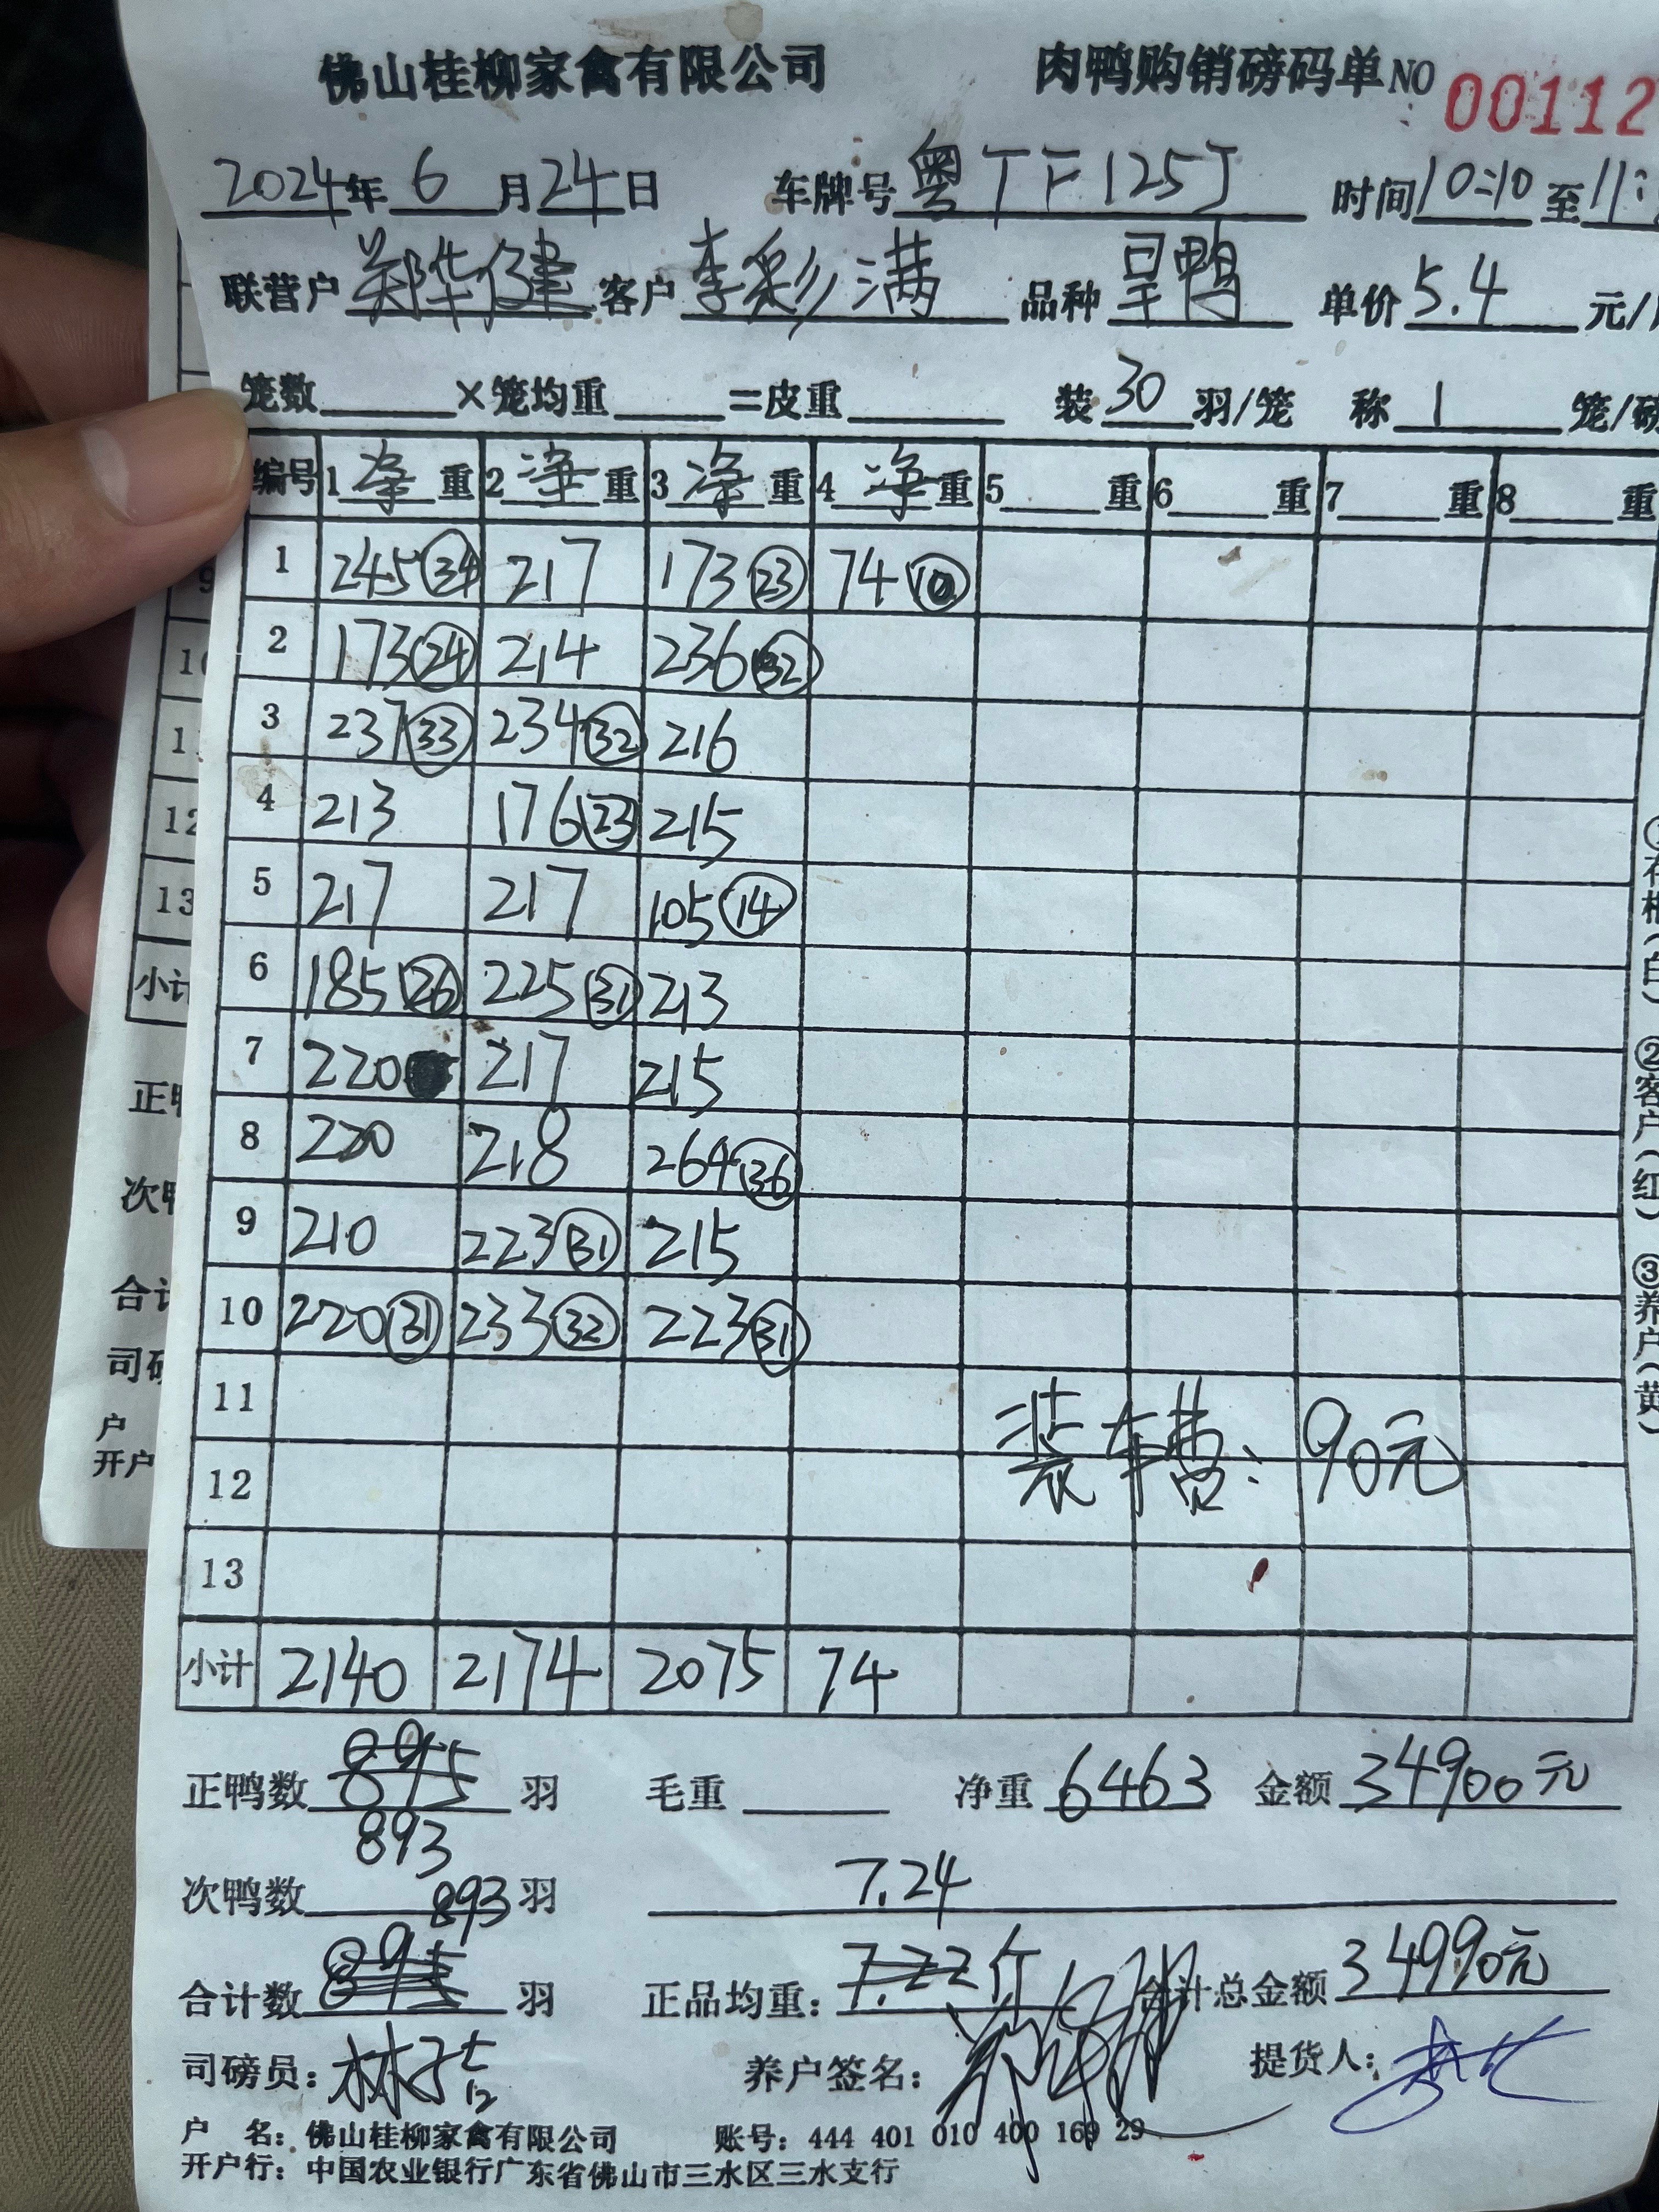 佛山桂柳家禽有限公司 肉鸭购销磅码单NO 00112
2024年 6 月 24 日 车牌号 粤TF125J 时间 10:10 至 11:
联营户 郑华健 客户 李彩满 品种 呈鸭 单价 5.4 元/
笼数 ×笼均重 =皮重 装 30 羽/笼 称 1 笼/磅
编号 1 净 重 2 净 重 3 净 重 4 净 重 5 重 6 重 7 重 8 重
1 245 (34) 217 173 (23) 74 (10)
2 173 (24) 214 236 (32)
3 237 (33) 234 (32) 216
4 213 176 (23) 215
5 217 217 105 (14)
6 185 (26) 225 (31) 213
7 220 217 215
8 220 218 264 (36)
9 210 223 (31) 215
10 220 (31) 233 (32) 223 (31)
11
12
装车费: 90元
13
小计 2140 2174 2075 74
正鸭数 895 羽 毛重 净重 6463 金额 34900元
893
次鸭数 羽 7.24
893
合计数 895 羽 正品均重: 7.22 斤 合计总金额 34990元
司磅员: 林 养户签名: 提货人:
户 名: 佛山桂柳家禽有限公司 账号: 444 401 010 400 160 29
开户行: 中国农业银行广东省佛山市三水区三水支行
①存根(白) ②客户(红) ③养户(黄)
9
10
11
12
13
小计
正鸭
次鸭
合计
司磅
户
开户